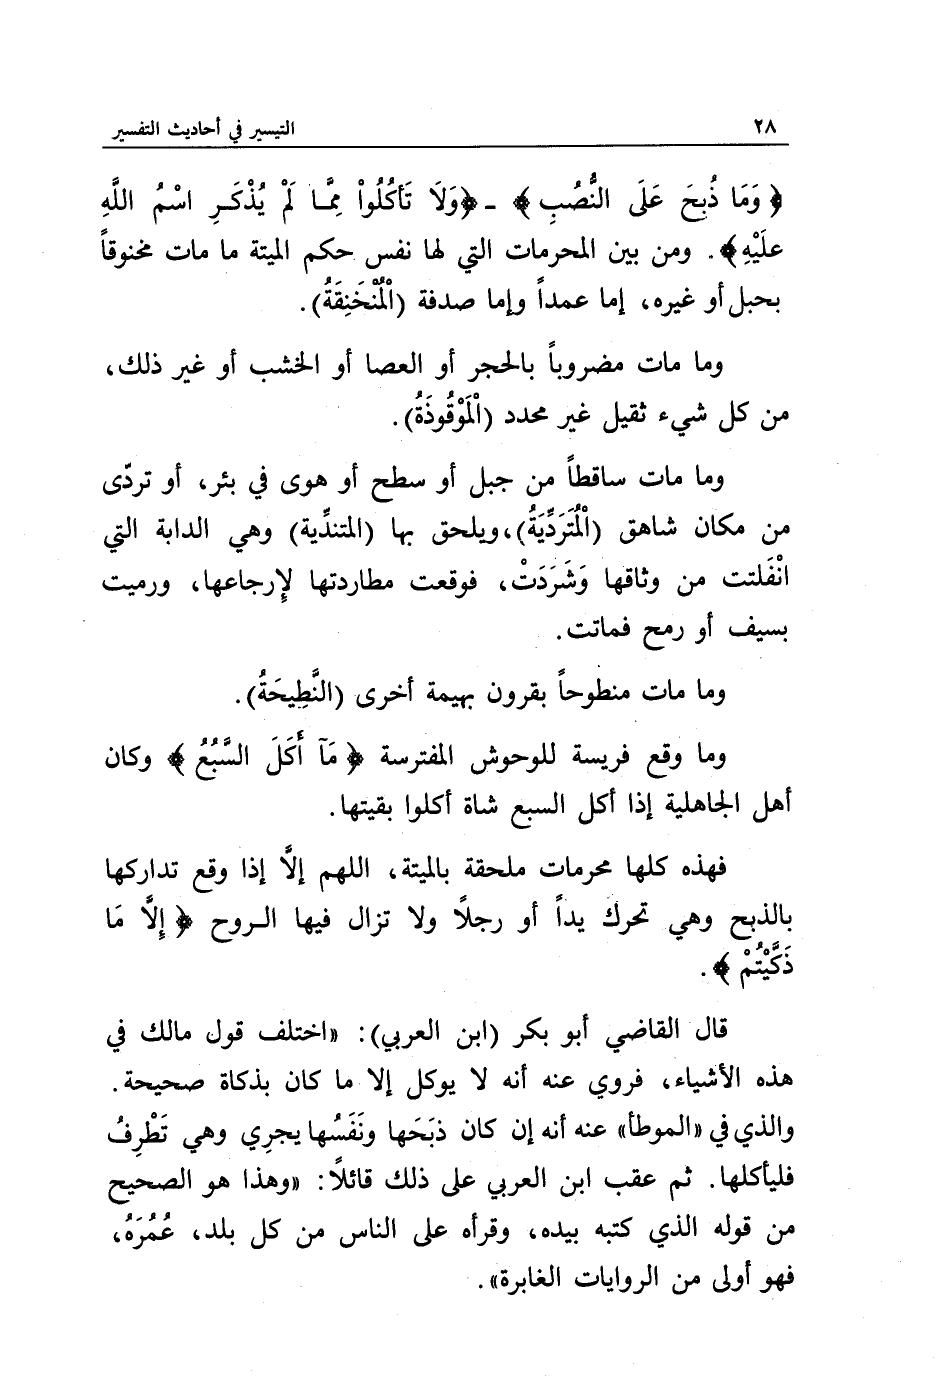 ٢٨
التيسير في أحاديث التفسير
﴿ وَمَا ذُبِحَ عَلَى النُّصُبِ ﴾ ـ ﴿وَلَا تَأكُلُواْ مِمَّـا لَمْ يُذْكَـرِ اسْمُ اللَّهِ
علَيْهِ﴾. ومن بين المحرمات التي لها نفس حكم الميتة ما مات مخنوقاً
بحبل أو غيره، إما عمداً وإما صدفة (الْمُنْخَنِقَةُ).
وما مات مضروباً بالحجر أو العصا أو الخشب أو غير ذلك،
من كل شيء ثقيل غير محدد (الْمَوْقُوذَةُ).
وما مات ساقطاً من جبل أو سطح أو هوى في بئر، أو تردّى
من مكان شاهق (الْمُتَرَدِّيَةُ)، ويلحق بها (المتندِّية) وهي الدابة التي
انْفَلتت من وثاقها وَشَرَدَتْ، فوقعت مطاردتها لإرجاعها، ورميت
بسيف أو رمح فماتت.
وما مات منطوحاً بقرون بهيمة أخرى (النَّطِيحَةُ).
وما وقع فريسة للوحوش المفترسة ﴿ مَآ أَكَلَ السَّبُعُ ﴾ وكان
أهل الجاهلية إذا أكل السبع شاة أكلوا بقيتها.
فهذه كلها محرمات ملحقة بالميتة، اللهم إلَّا إذا وقع تداركها
بالذبح وهي تحرك يداً أو رجلاً ولا تزال فيها الـروح ﴿ إِلَّا مَا
ذَكَّيْتُمْ ﴾.
قال القاضي أبو بكر (ابن العربي): «اختلف قول مالك في
هذه الأشياء، فروي عنه أنه لا يوكل إلا ما كان بذكاة صحيحة.
والذي في «الموطأ» عنه أنه إن كان ذبَحَها ونَفَسُها يجرِي وهي تَطْرِفُ
فليأكلها. ثم عقب ابن العربي على ذلك قائلاً: «وهذا هو الصحيح
من قوله الذي كتبه بيده، وقرأه على الناس من كل بلد، عُمُرَهُ،
فهو أولى من الروايات الغابرة».